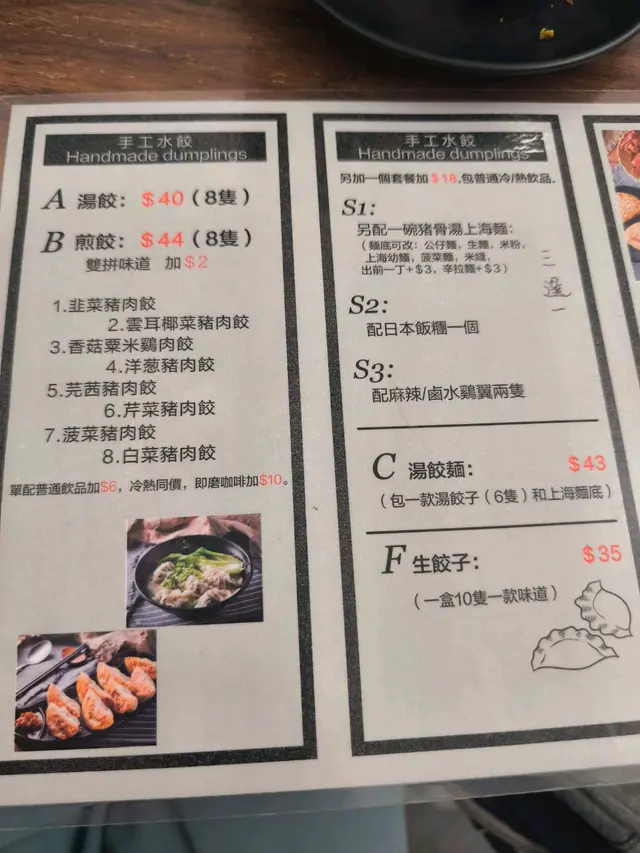 手工水餃
Handmade dumplings
A 湯餃： $40（8隻）
B 煎餃： $44（8隻）
雙拼味道 加$2
1.韭菜豬肉餃
2.雲耳椰菜豬肉餃
3.香菇粟米鷄肉餃
4.洋葱豬肉餃
5.芫茜豬肉餃
6.芹菜豬肉餃
7.菠菜豬肉餃
8.白菜豬肉餃
單配普通飲品加$6，冷熱同價，即磨咖啡加$10。
手工水餃
Handmade dumplings
另加一個套餐加$18.包普通冷/熱飲品.
S1:
另配一碗猪骨湯上海麵：
（麵底可改：公仔麵，生麵，米粉，
上海幼麵，菠菜麵，米綫，
出前一丁+$3，辛拉麵+$3）
三選一
S2:
配日本飯糰一個
S3:
配麻辣/鹵水鷄翼兩隻
C 湯餃麵： $43
（包一款湯餃子（6隻）和上海麵底）
F 生餃子： $35
（一盒10隻一款味道）